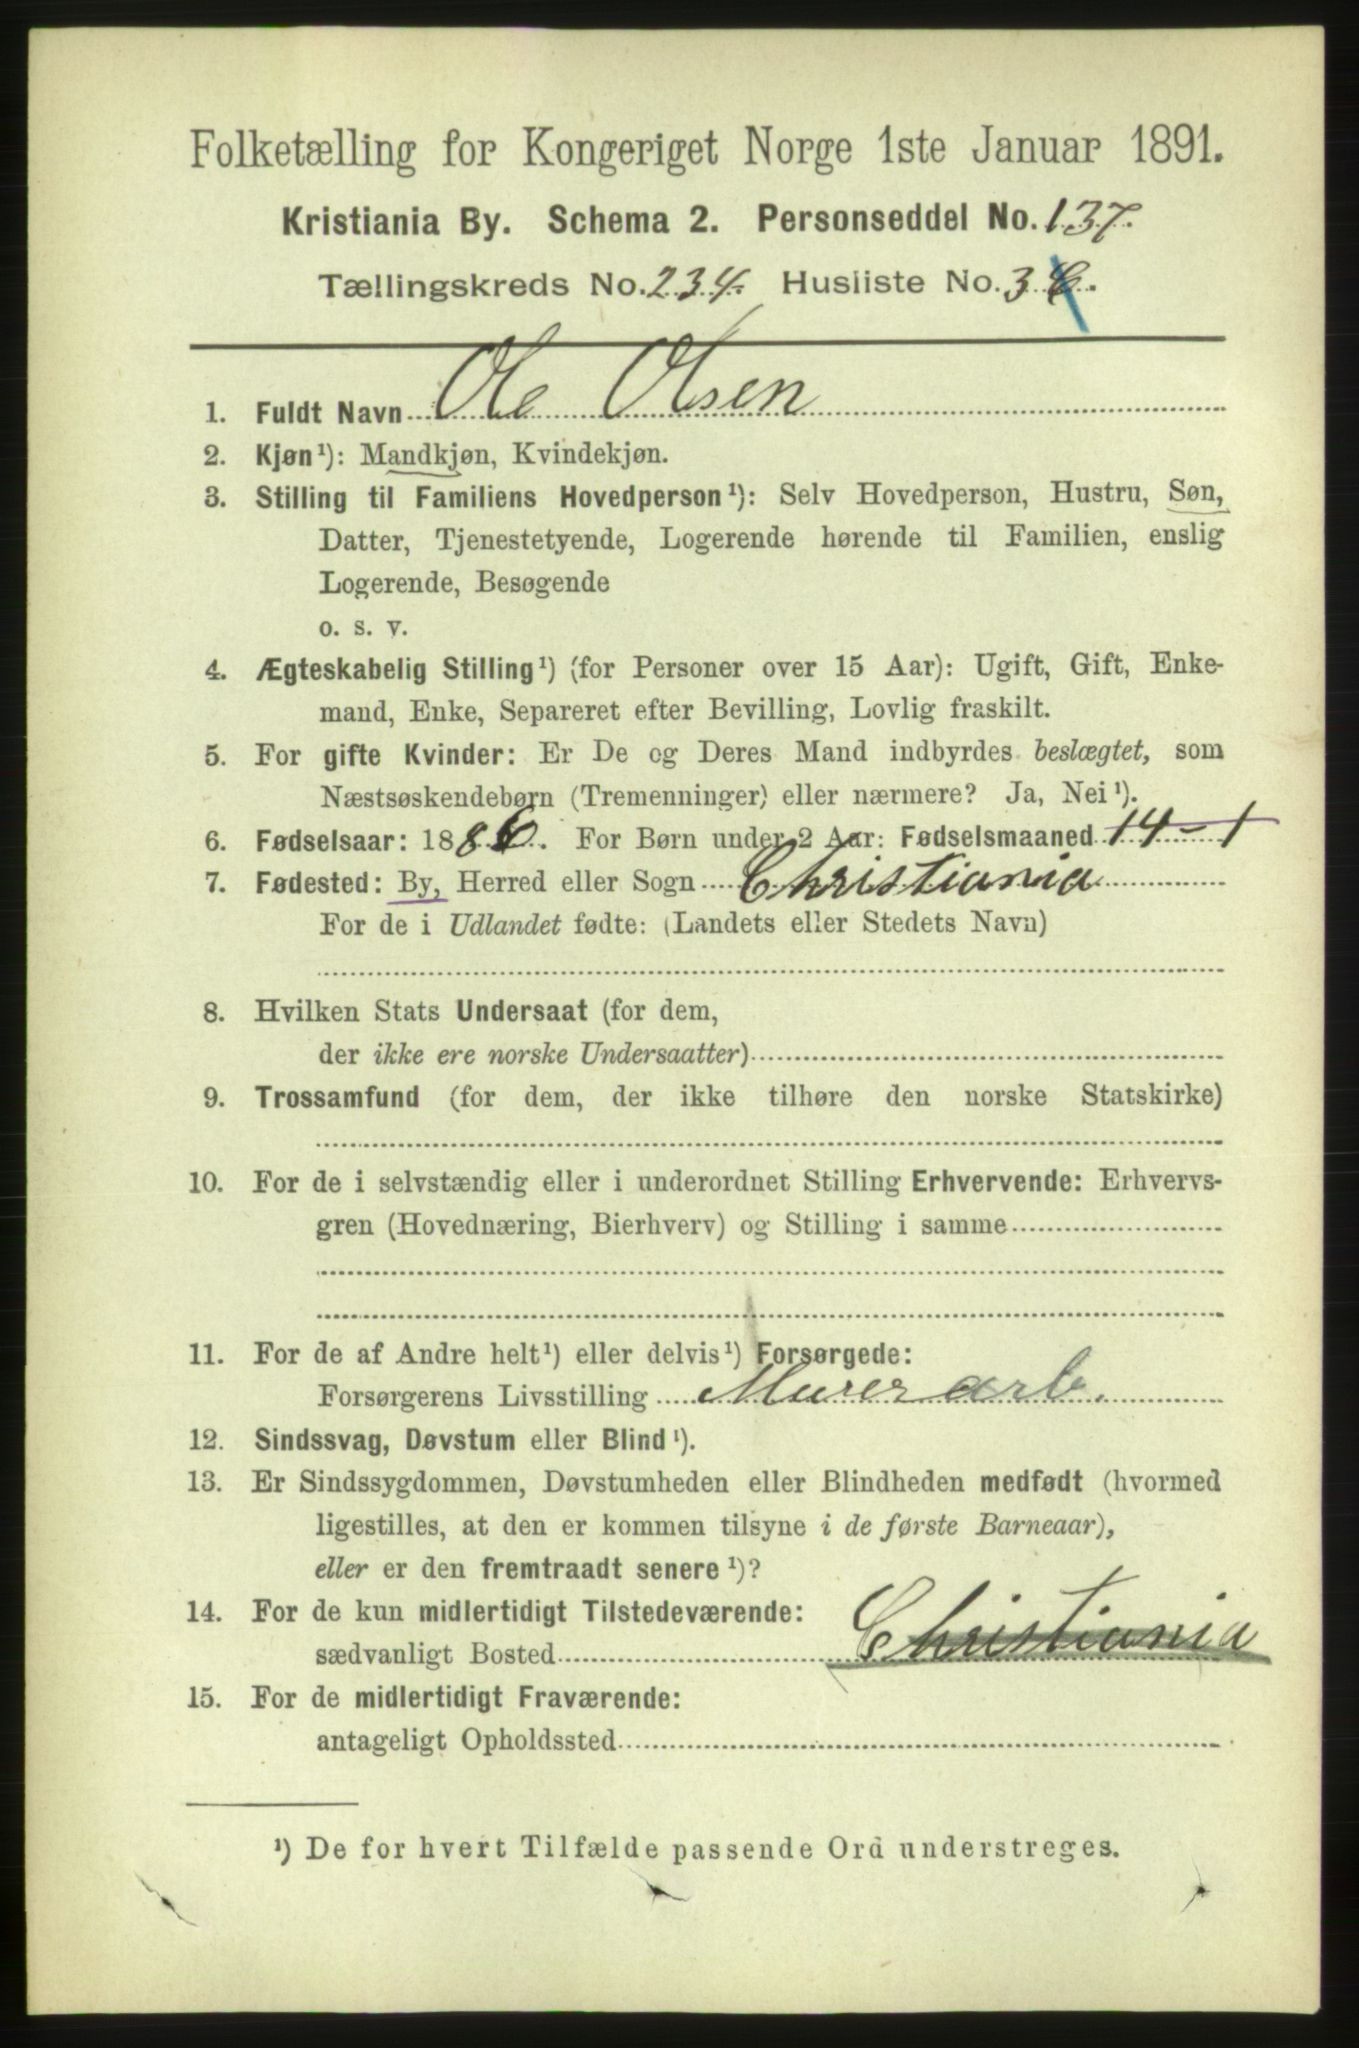 Folketælling for Kongeriget Norge 1ste Januar 1891.
Kristiania By. Schema 2. Personseddel No. 137.
Tællingskreds No. 234. Husliste No. 3
1. Fuldt Navn Ole Olsen
2. Kjøn¹): Mandkjøn, Kvindekjøn.
3. Stilling til Familiens Hovedperson¹): Selv Hovedperson, Hustru, Søn,
Datter, Tjenestetyende, Logerende hørende til Familien, enslig
Logerende, Besøgende
o. s. v.
4. Ægteskabelig Stilling¹) (for Personer over 15 Aar): Ugift, Gift, Enke-
mand, Enke, Separeret efter Bevilling, Lovlig fraskilt.
5. For gifte Kvinder: Er De og Deres Mand indbyrdes beslægtet, som
Næstsøskendebørn (Tremenninger) eller nærmere? Ja, Nei¹).
6. Fødselsaar: 1886. For Børn under 2 Aar: Fødselsmaaned 14-1
7. Fødested: By, Herred eller Sogn Christiania
For de i Udlandet fødte: (Landets eller Stedets Navn)
8. Hvilken Stats Undersaat (for dem,
der ikke ere norske Undersaatter)
9. Trossamfund (for dem, der ikke tilhøre den norske Statskirke)
10. For de i selvstændig eller i underordnet Stilling Erhvervende: Erhvervs-
gren (Hovednæring, Bierhverv) og Stilling i samme
11. For de af Andre helt¹) eller delvis¹) Forsørgede:
Forsørgerens Livsstilling Murerarb.
12. Sindssvag, Døvstum eller Blind¹).
13. Er Sindssygdommen, Døvstumheden eller Blindheden medfødt (hvormed
ligestilles, at den er kommen tilsyne i de første Barneaar),
eller er den fremtraadt senere¹)?
14. For de kun midlertidigt Tilstedeværende:
sædvanligt Bosted Christiania
15. For de midlertidigt Fraværende:
antageligt Opholdssted
¹) De for hvert Tilfælde passende Ord understreges.